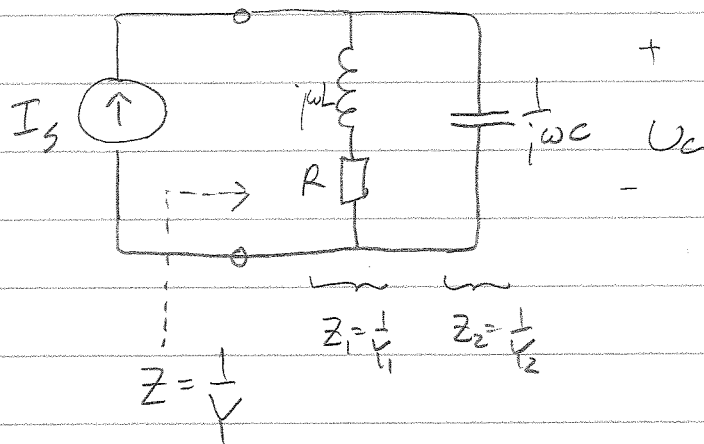 I_s
↑
jωL
R
1/jωC
+
U_C
-
Z_1 = 1/Y_1
Z_2 = 1/Y_2
Z = 1/Y